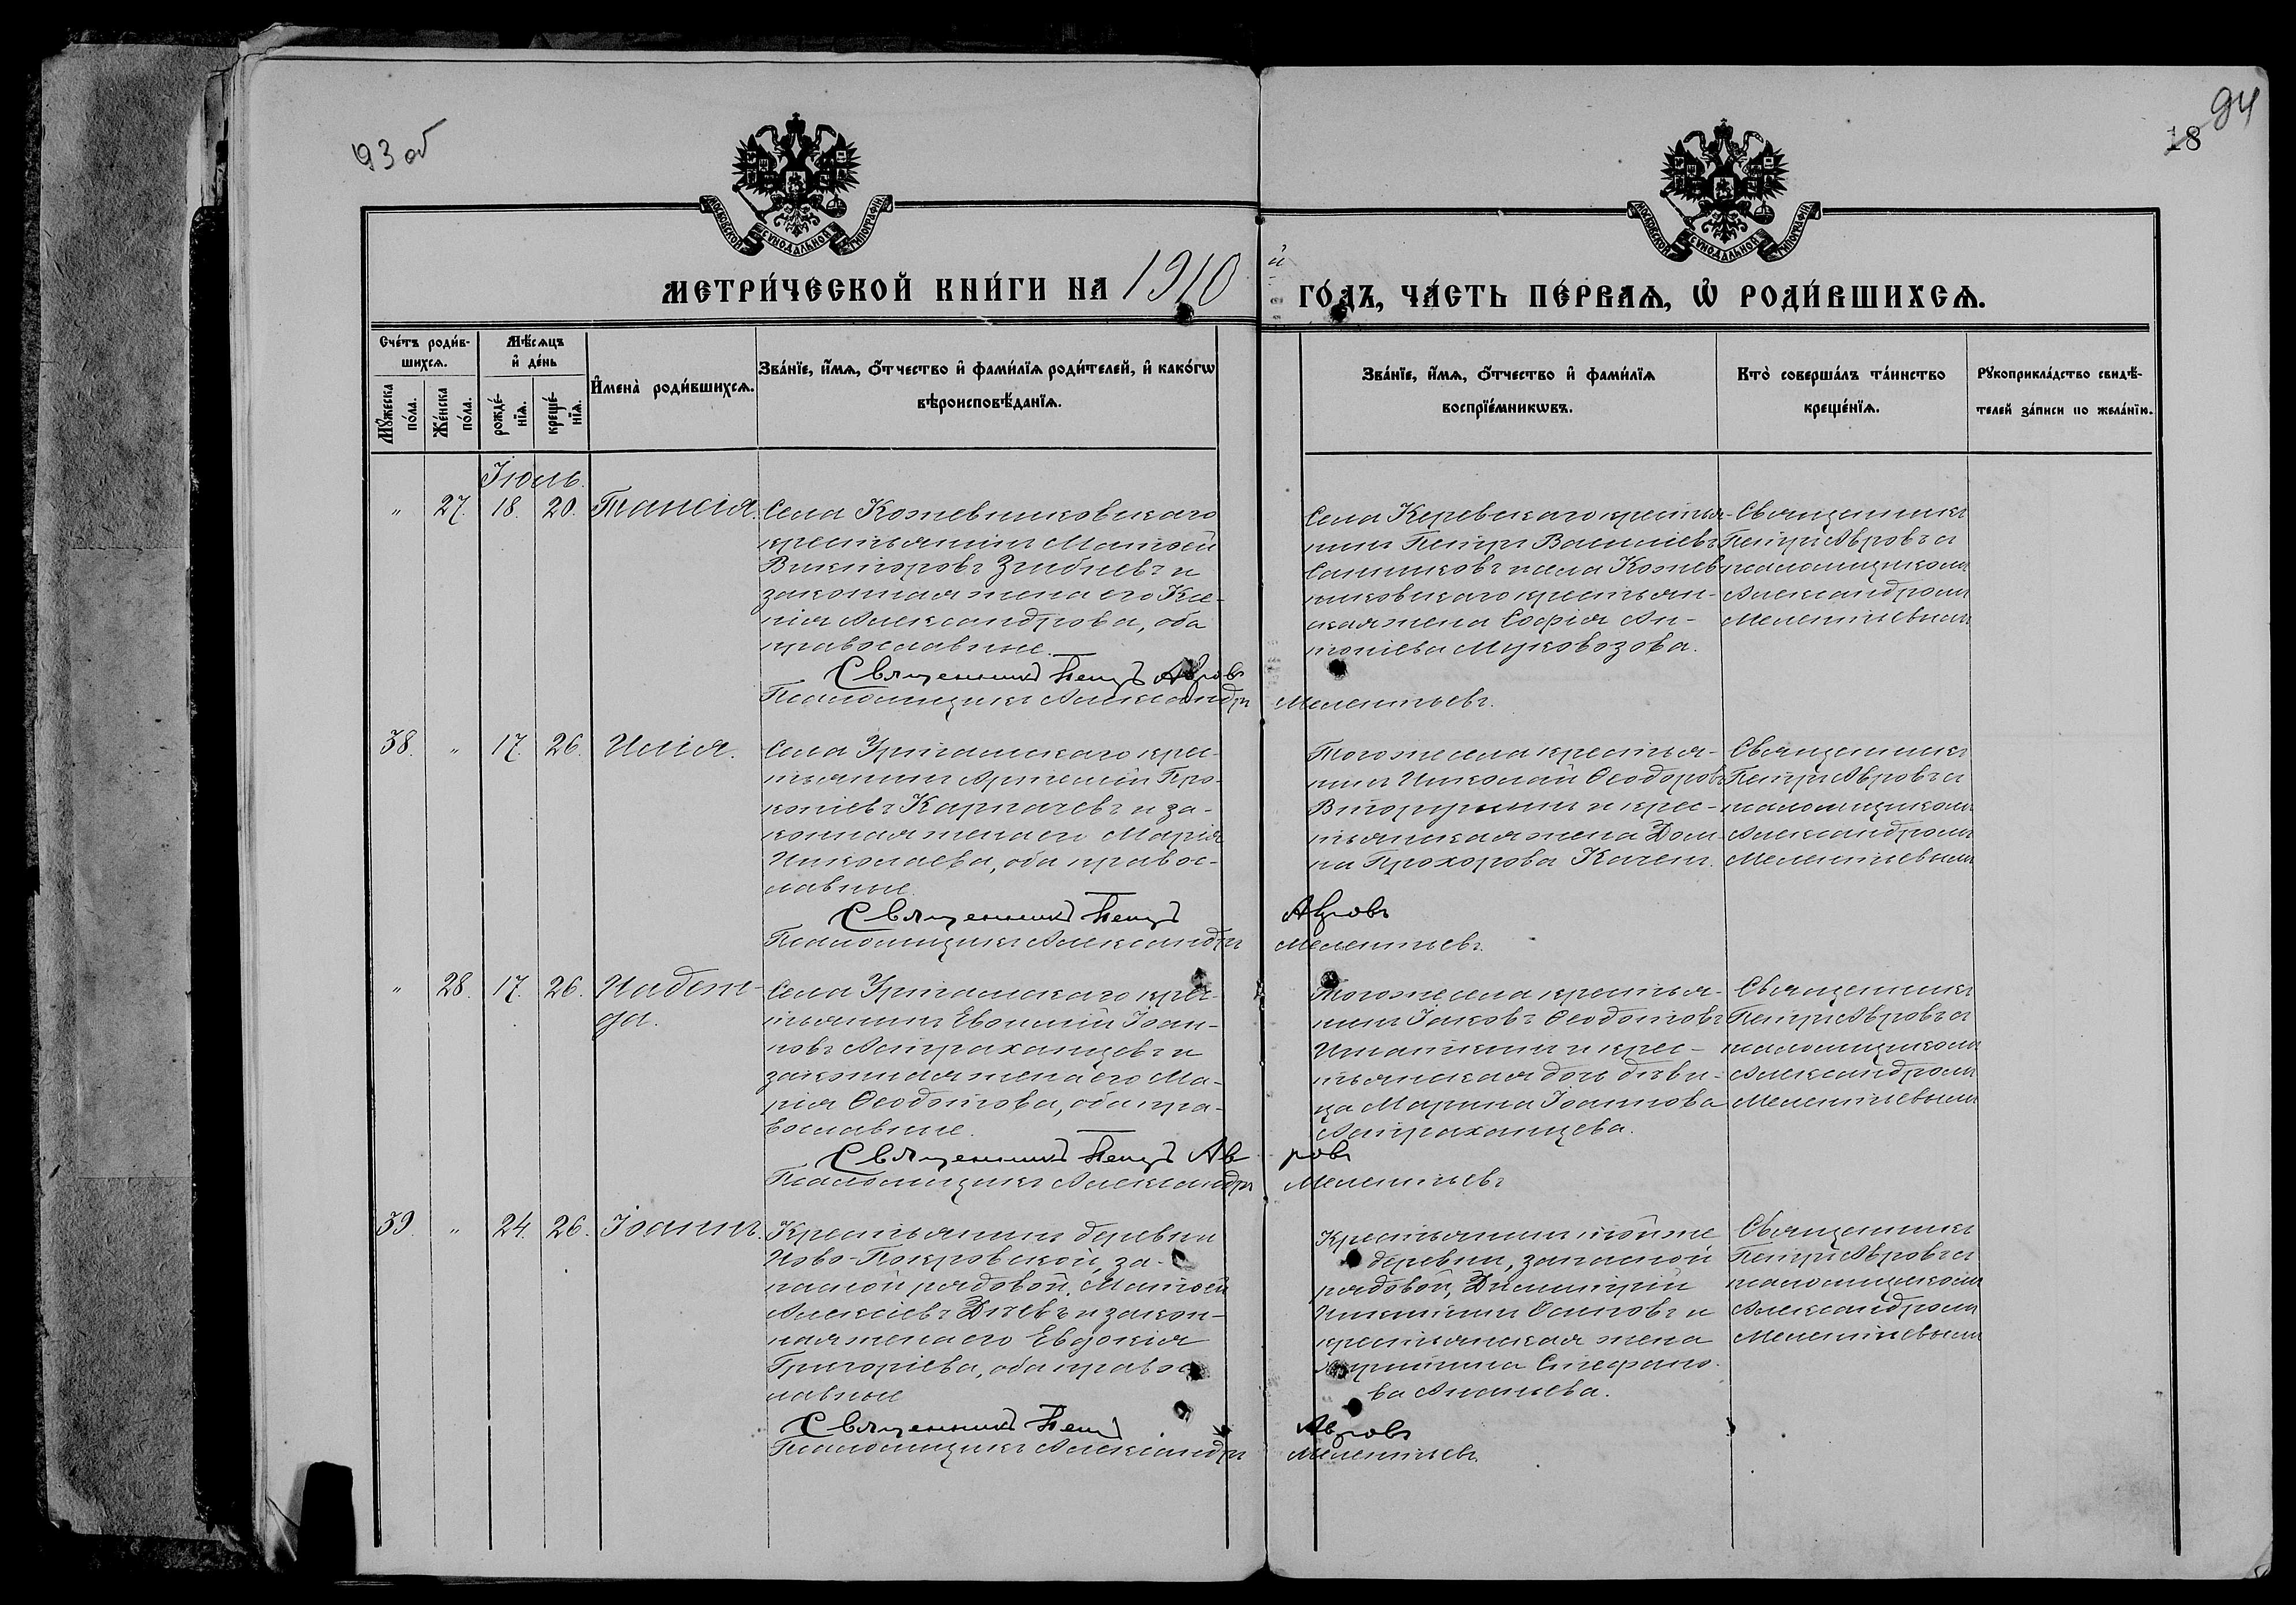 93 об
94
18
МОСКОВСКОЙ СѴНОДАЛЬНОЙ ТИПОГРАФІИ
МОСКОВСКОЙ СѴНОДАЛЬНОЙ ТИПОГРАФІИ
МЕТРИ́ЧЕСКОЙ КНИ́ГИ НА 1910 ГО́ДЪ, ЧА́СТЬ ПЕ́РВАѦ, Ѡ҆ РОДИ́ВШИХСѦ.
Сче́тъ роди́в-
шихсѧ.
Мꙋ́жеска по́ла.
Же́нска по́ла.
Мѣ́сѧцъ
и҆ де́нь
рожде́-
нїѧ.
креще́-
нїѧ.
И҆мена̀ роди́вшихсѧ.
Зва́нїе, и҆́мѧ, ѻ҆́тчество и҆ фами́лїѧ роди́телей, и҆ како́гѡ
вѣроисповѣ́данїѧ.
Зва́нїе, и҆́мѧ, ѻ҆́тчество и҆ фами́лїѧ
воспрїе́мникѡвъ.
Кто̀ соверша́лъ та́инство
креще́нїѧ.
Рꙋкоприкла́дство свидѣ́-
телей за́писи по жела́нїю.
Іюль.
" 27. 18. 20. Таисія.
Села Кожевниковскаго
крестьянинъ Матѳей
Викторовъ и
законная жена его Ксе-
нія Александрова, оба
православные.
Села Киревскаго крестья-
нинъ Петръ Васильевъ
Санниковъ и села Кожев-
никовскаго крестьян-
ская жена Софія Ан-
тоніева Муковозова.
Священникъ
Петръ Авровъ съ
псаломщикомъ
Александромъ
Мелентьевымъ
Священникъ Петръ Авровъ
Псаломщикъ Александръ Мелентьевъ.
38. " 17. 26. Илія.
Села Уртамскаго крес-
тьянинъ Артемій Про-
копіевъ Карпачевъ и за-
конная жена его Марія
Николаева, оба правос-
лавные.
Того же села крестья-
нинъ Николай Ѳеодоровъ
Вторушинъ и крес-
тьянская жена Дом-
на Прохорова Качет.
Священникъ
Петръ Авровъ съ
псаломщикомъ
Александромъ
Мелентьевымъ
Священникъ Петръ Авровъ
Псаломщикъ Александръ Мелентьевъ.
" 28. 17. 26. Надеж-
да.
Села Уртамскаго крес-
тьянинъ Евѳимій Іоан-
новъ Астраханцевъ и
законная жена его Ма-
рія Ѳеодотова, оба пра-
вославные.
Того же села крестья-
нинъ Іаковъ Ѳеодотовъ
Игнаткинъ и крес-
тьянская дочь дѣви-
ца Марина Іоаннова
Астраханцева.
Священникъ
Петръ Авровъ съ
псаломщикомъ
Александромъ
Мелентьевымъ
Священникъ Петръ Авровъ
Псаломщикъ Александръ Мелентьевъ
39. " 24. 26. Іоаннъ.
Крестьянинъ деревни
Ново-Покровской, за-
пасной рядовой, Матѳей
Алексіевъ и закон-
ная жена его Евдокія
Григоріева, оба правос-
лавные
Крестьянинъ той же
деревни, запасной
рядовой, Димитрій
Никитинъ Осиповъ и
крестьянская жена
Стефано-
ва Ананьева.
Священникъ
Петръ Авровъ съ
псаломщикомъ
Александромъ
Мелентьевымъ
Священникъ Петръ Авровъ
Псаломщикъ Александръ Мелентьевъ.